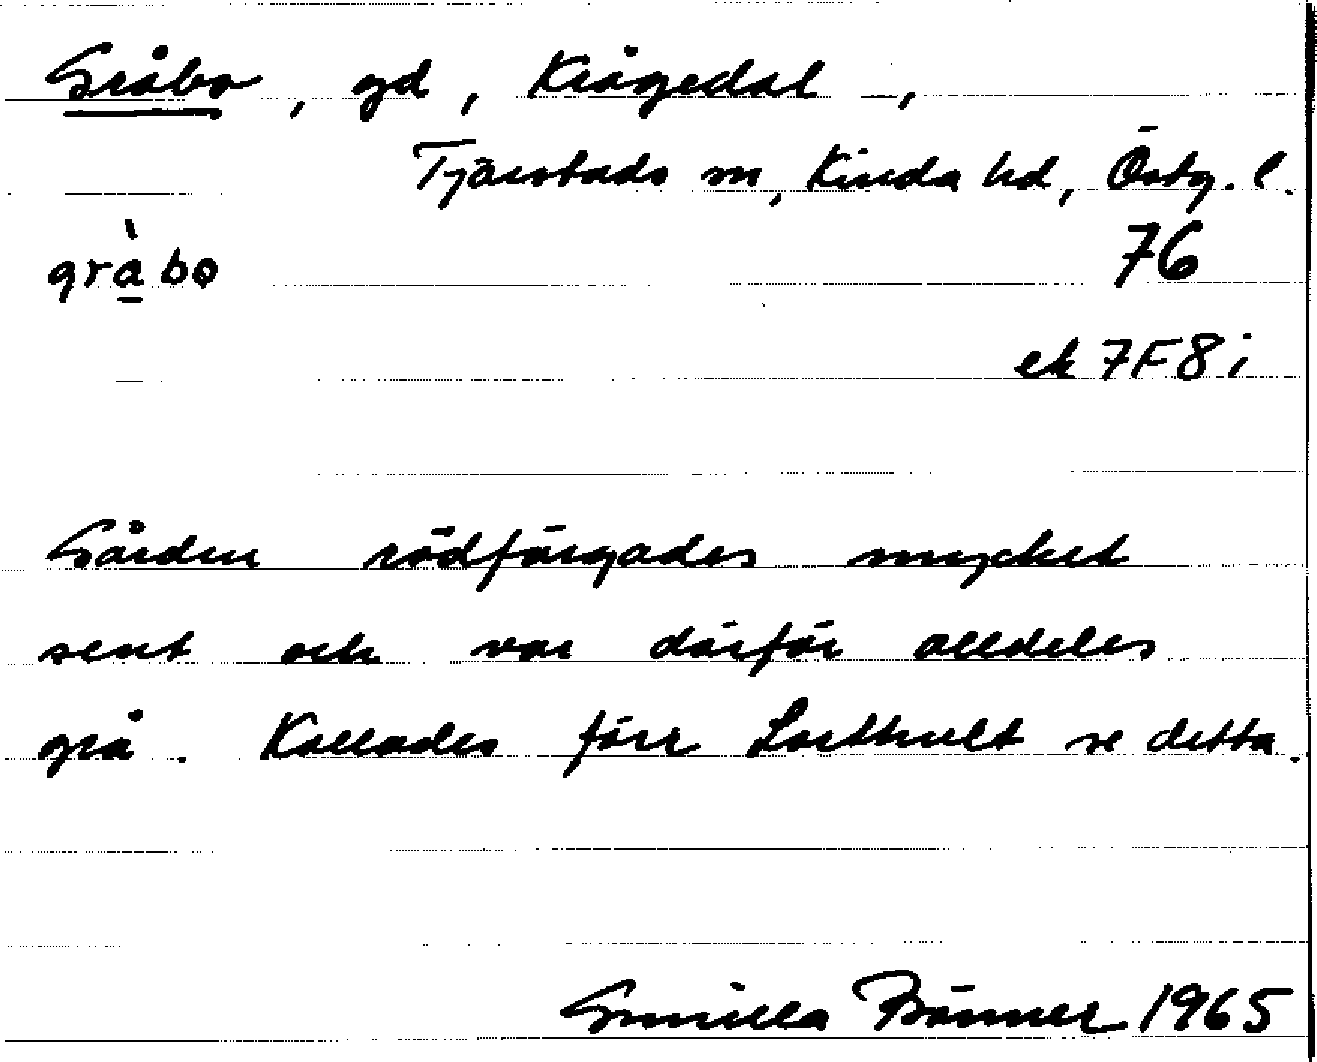 Gråbo, gd, Krågedal,
Tjärstads sn, Kinda hd, Östg. l.
gràbo 76
ek 7F8i
Gården rödfärgades mycket
sent och var därför alldeles
grå. Kallades förr Lorthult se detta.
Gunilla 1965